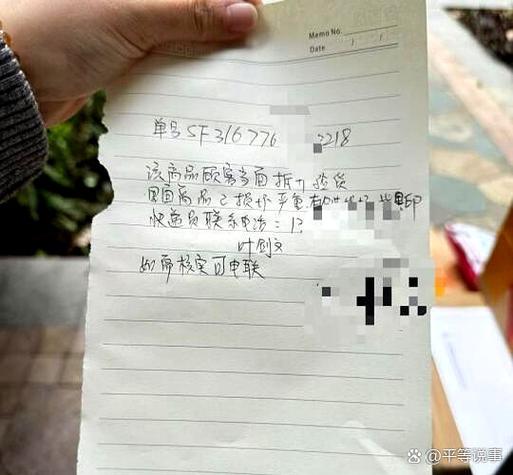 Memo No.
Date / /
单号SF316776 2218
该商品顾客当面拆开验货
里面商品已损坏严重有
快递员联系电话：1
叶剑
如需核实可电联
平等说事